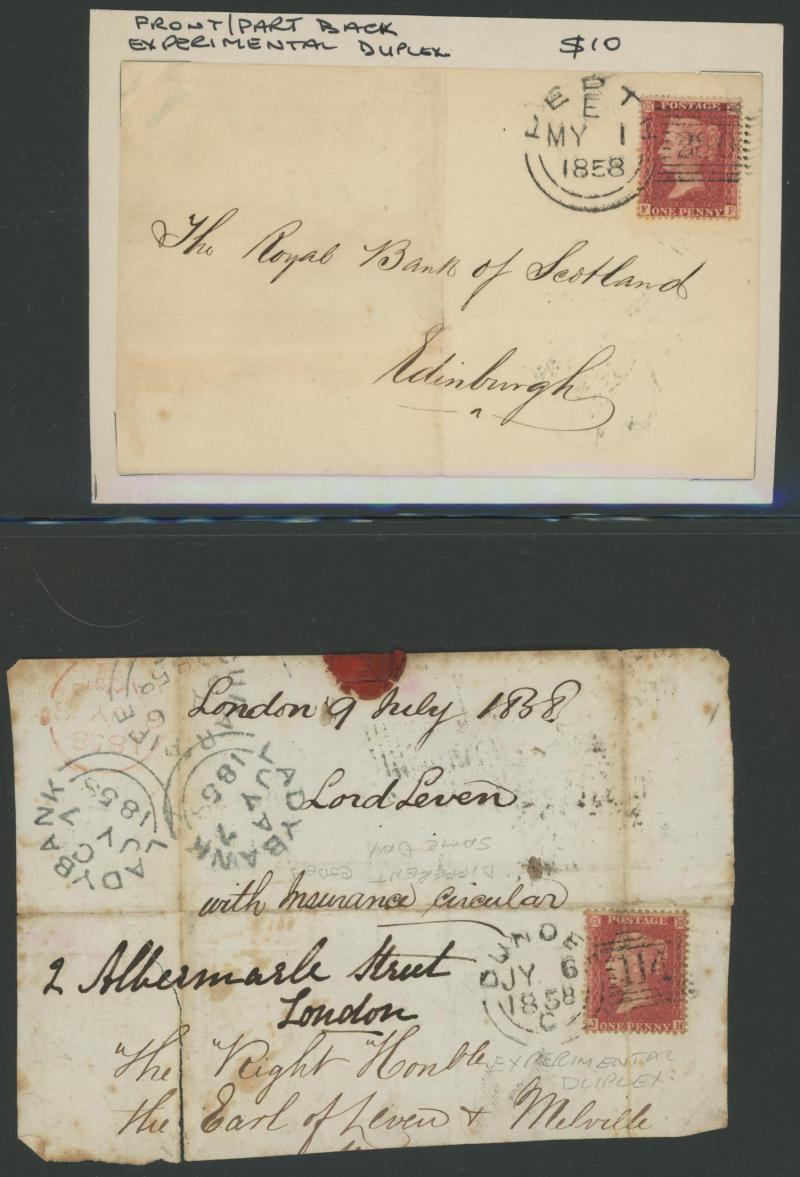 FRONT/PART BACK
EXPERIMENTAL DUPLEX $10
E
MY 1
1858
POSTAGE
F ONE PENNY F
The Royal Bank of Scotland
Edinburgh
London 9 July 1858
LADYBANK
1858
Lord Leven
LADYBANK
SAME DAY
DIFFERENT CODES
with Insurance circular
2 Albermarle Street
London
DUNDEE
JY 6
1858
C
POSTAGE
114
ONE PENNY H
EXPERIMENTAL
DUPLEX
The Right Honble
the Earl of Leven & Melville